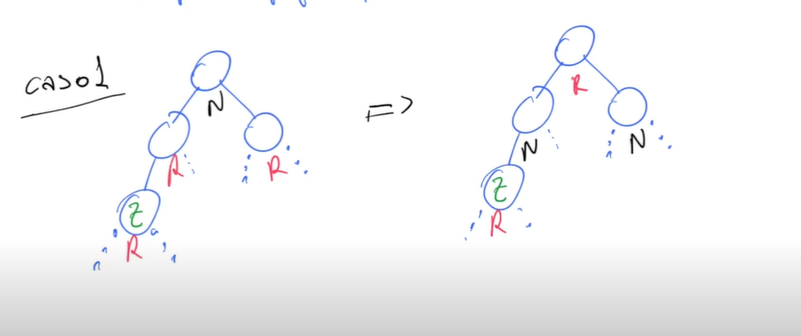 caso1
N
=>
R
R
R
Z
R
N
N
Z
R